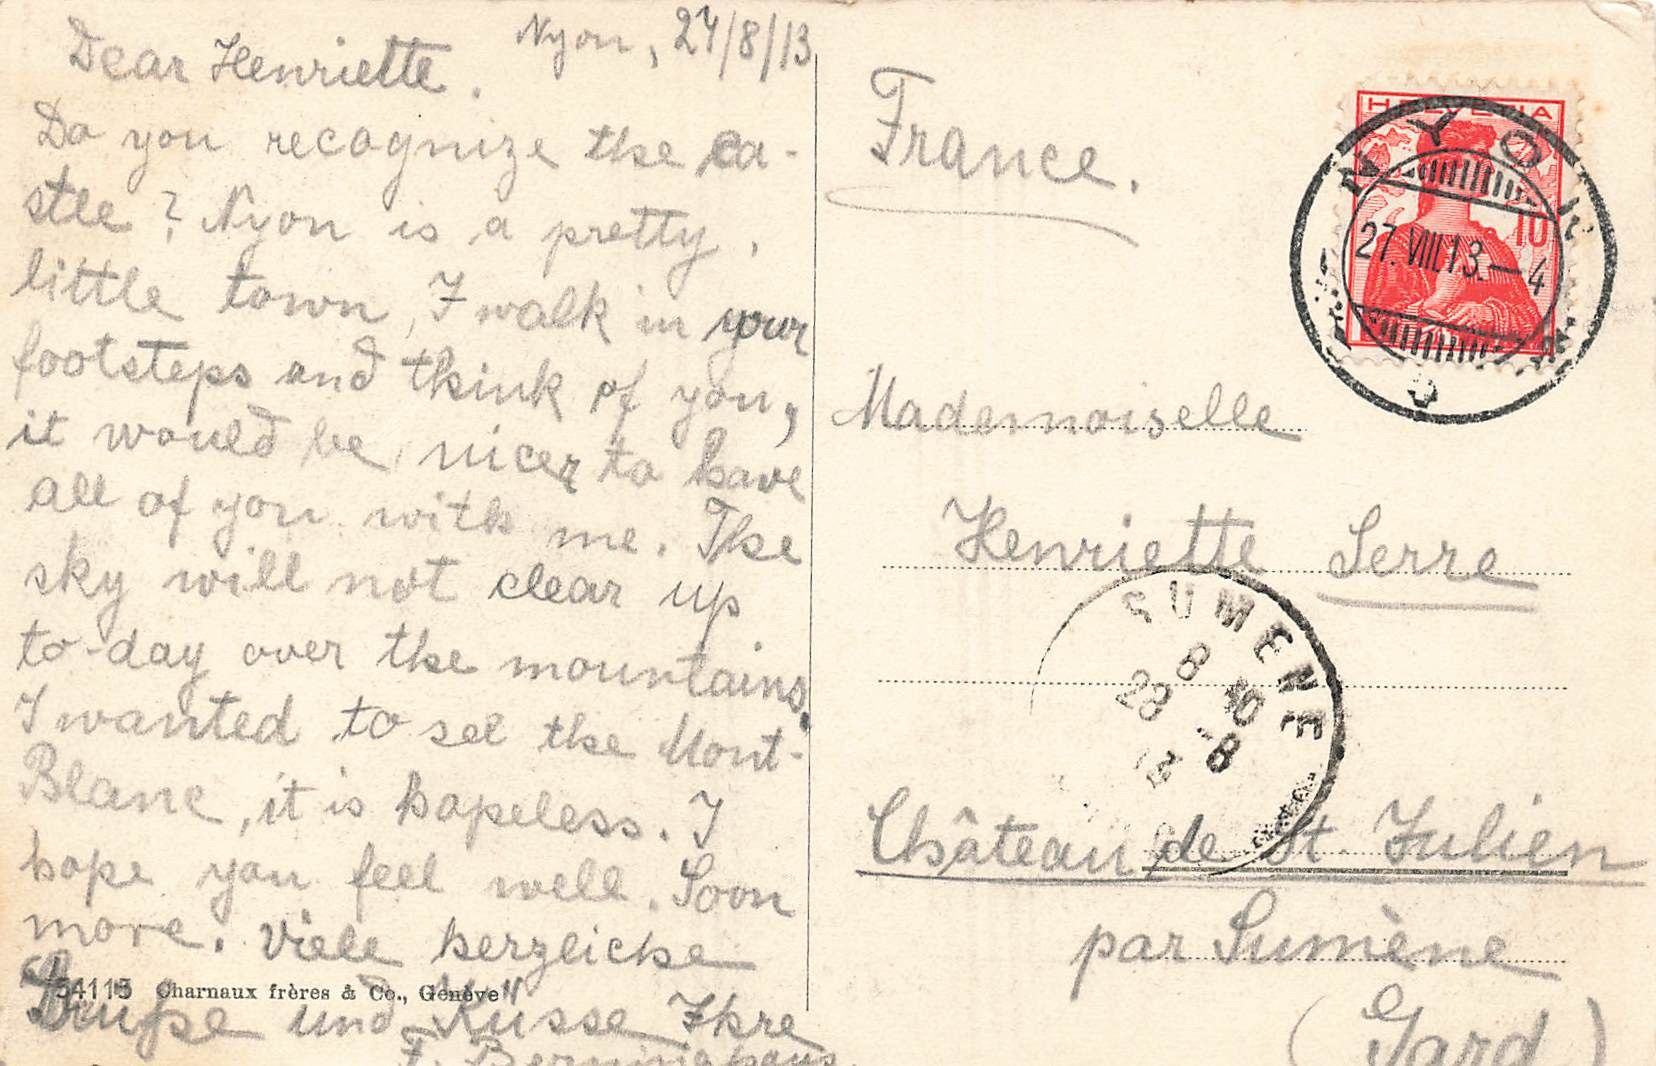 Nyon, 27/8/13
Dear Henriette.
Do you recognize the ca-
stle? Nyon is a pretty,
little town, I walk in your
footsteps and think of you,
it would be nicer to have
all of you with me. The
sky will not clear up
to-day over the mountains.
I wanted to see the Mont-
Blanc, it is hopeless. I
hope you feel well. Soon
more. Viele herzliche
Grüsse und Küsse Ihre
F. Berninghaus.
54115 Charnaux frères & Co., Genève
France.
HELVETIA
10
NYON
27. VIII.13.–4
Mademoiselle
Henriette Serre
SUMENE
8 30
28 -8
13
Château de St. Julien
par Sumène
(Gard)